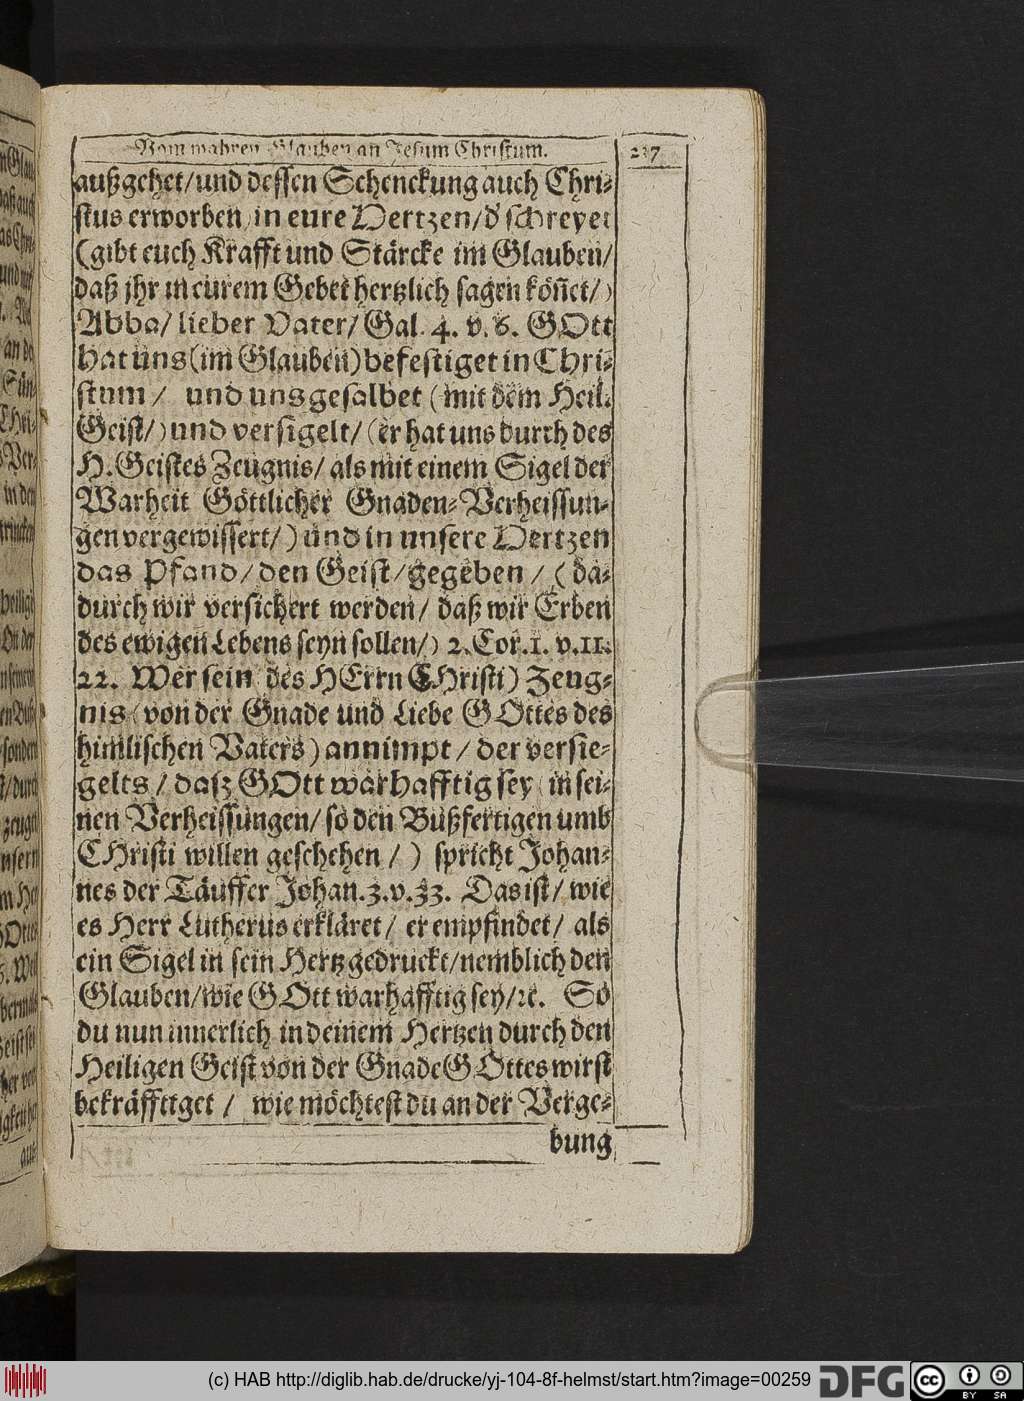 Vom wahren Glauben an Jesum Christum. 237
außgehet/und dessen Schenckung auch Chri-
stus erworben) in eure Hertzen/d' schreyet
(gibt euch Krafft und Stärcke im Glauben/
daß jhr in eurem Gebet hertzlich sagen kön̄et/)
Abba/ lieber Vater/ Gal. 4. v. 6. GOtt
hat uns (im Glauben) befestiget in Chri-
stum/ und uns gesalbet (mit dem Heil.
Geist/) und versigelt/ (er hat uns durch des
H. Geistes Zeugnis/ als mit einem Sigel der
Warheit Göttlicher Gnaden-Verheissun-
gen vergewissert/) und in unsere Hertzen
das Pfand/ den Geist/ gegeben/ (da-
durch wir versichert werden/ daß wir Erben
des ewigen Lebens seyn sollen/) 2. Cor. 1. v. 11.
22. Wer sein (des HErrn CHristi) Zeug-
nis (von der Gnade und Liebe GOttes des
himlischen Vaters) annimpt/ der versie-
gelts/ dasz GOtt warhafftig sey (in sei-
nen Verheissungen/ so den Bußfertigen umb
CHristi willen geschehen/) spricht Johan-
nes der Täuffer Johan. 3. v. 33. Das ist/ wie
es Herr Lutherus erkläret/ er empfindet/ als
ein Sigel in sein Hertz gedruckt/nemblich den
Glauben/wie GOtt warhafftig sey/ꝛc. So
du nun innerlich in deinem Hertzen durch den
Heiligen Geist von der Gnade GOttes wirst
bekräfftiget/ wie möchtest du an der Verge-
bung
(c) HAB http://diglib.hab.de/drucke/yj-104-8f-helmst/start.htm?image=00259 DFG cc BY SA